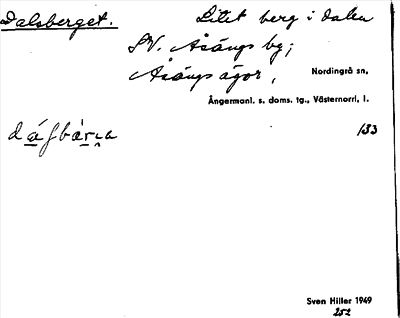 Dalsberget. Litet berg i dalen
SV. Åsängs by;
Åsängs ägor, Nordingrå sn,
Ångermanl. s. doms. tg., Västernorrl, l.
133
Sven Hiller 1949
252